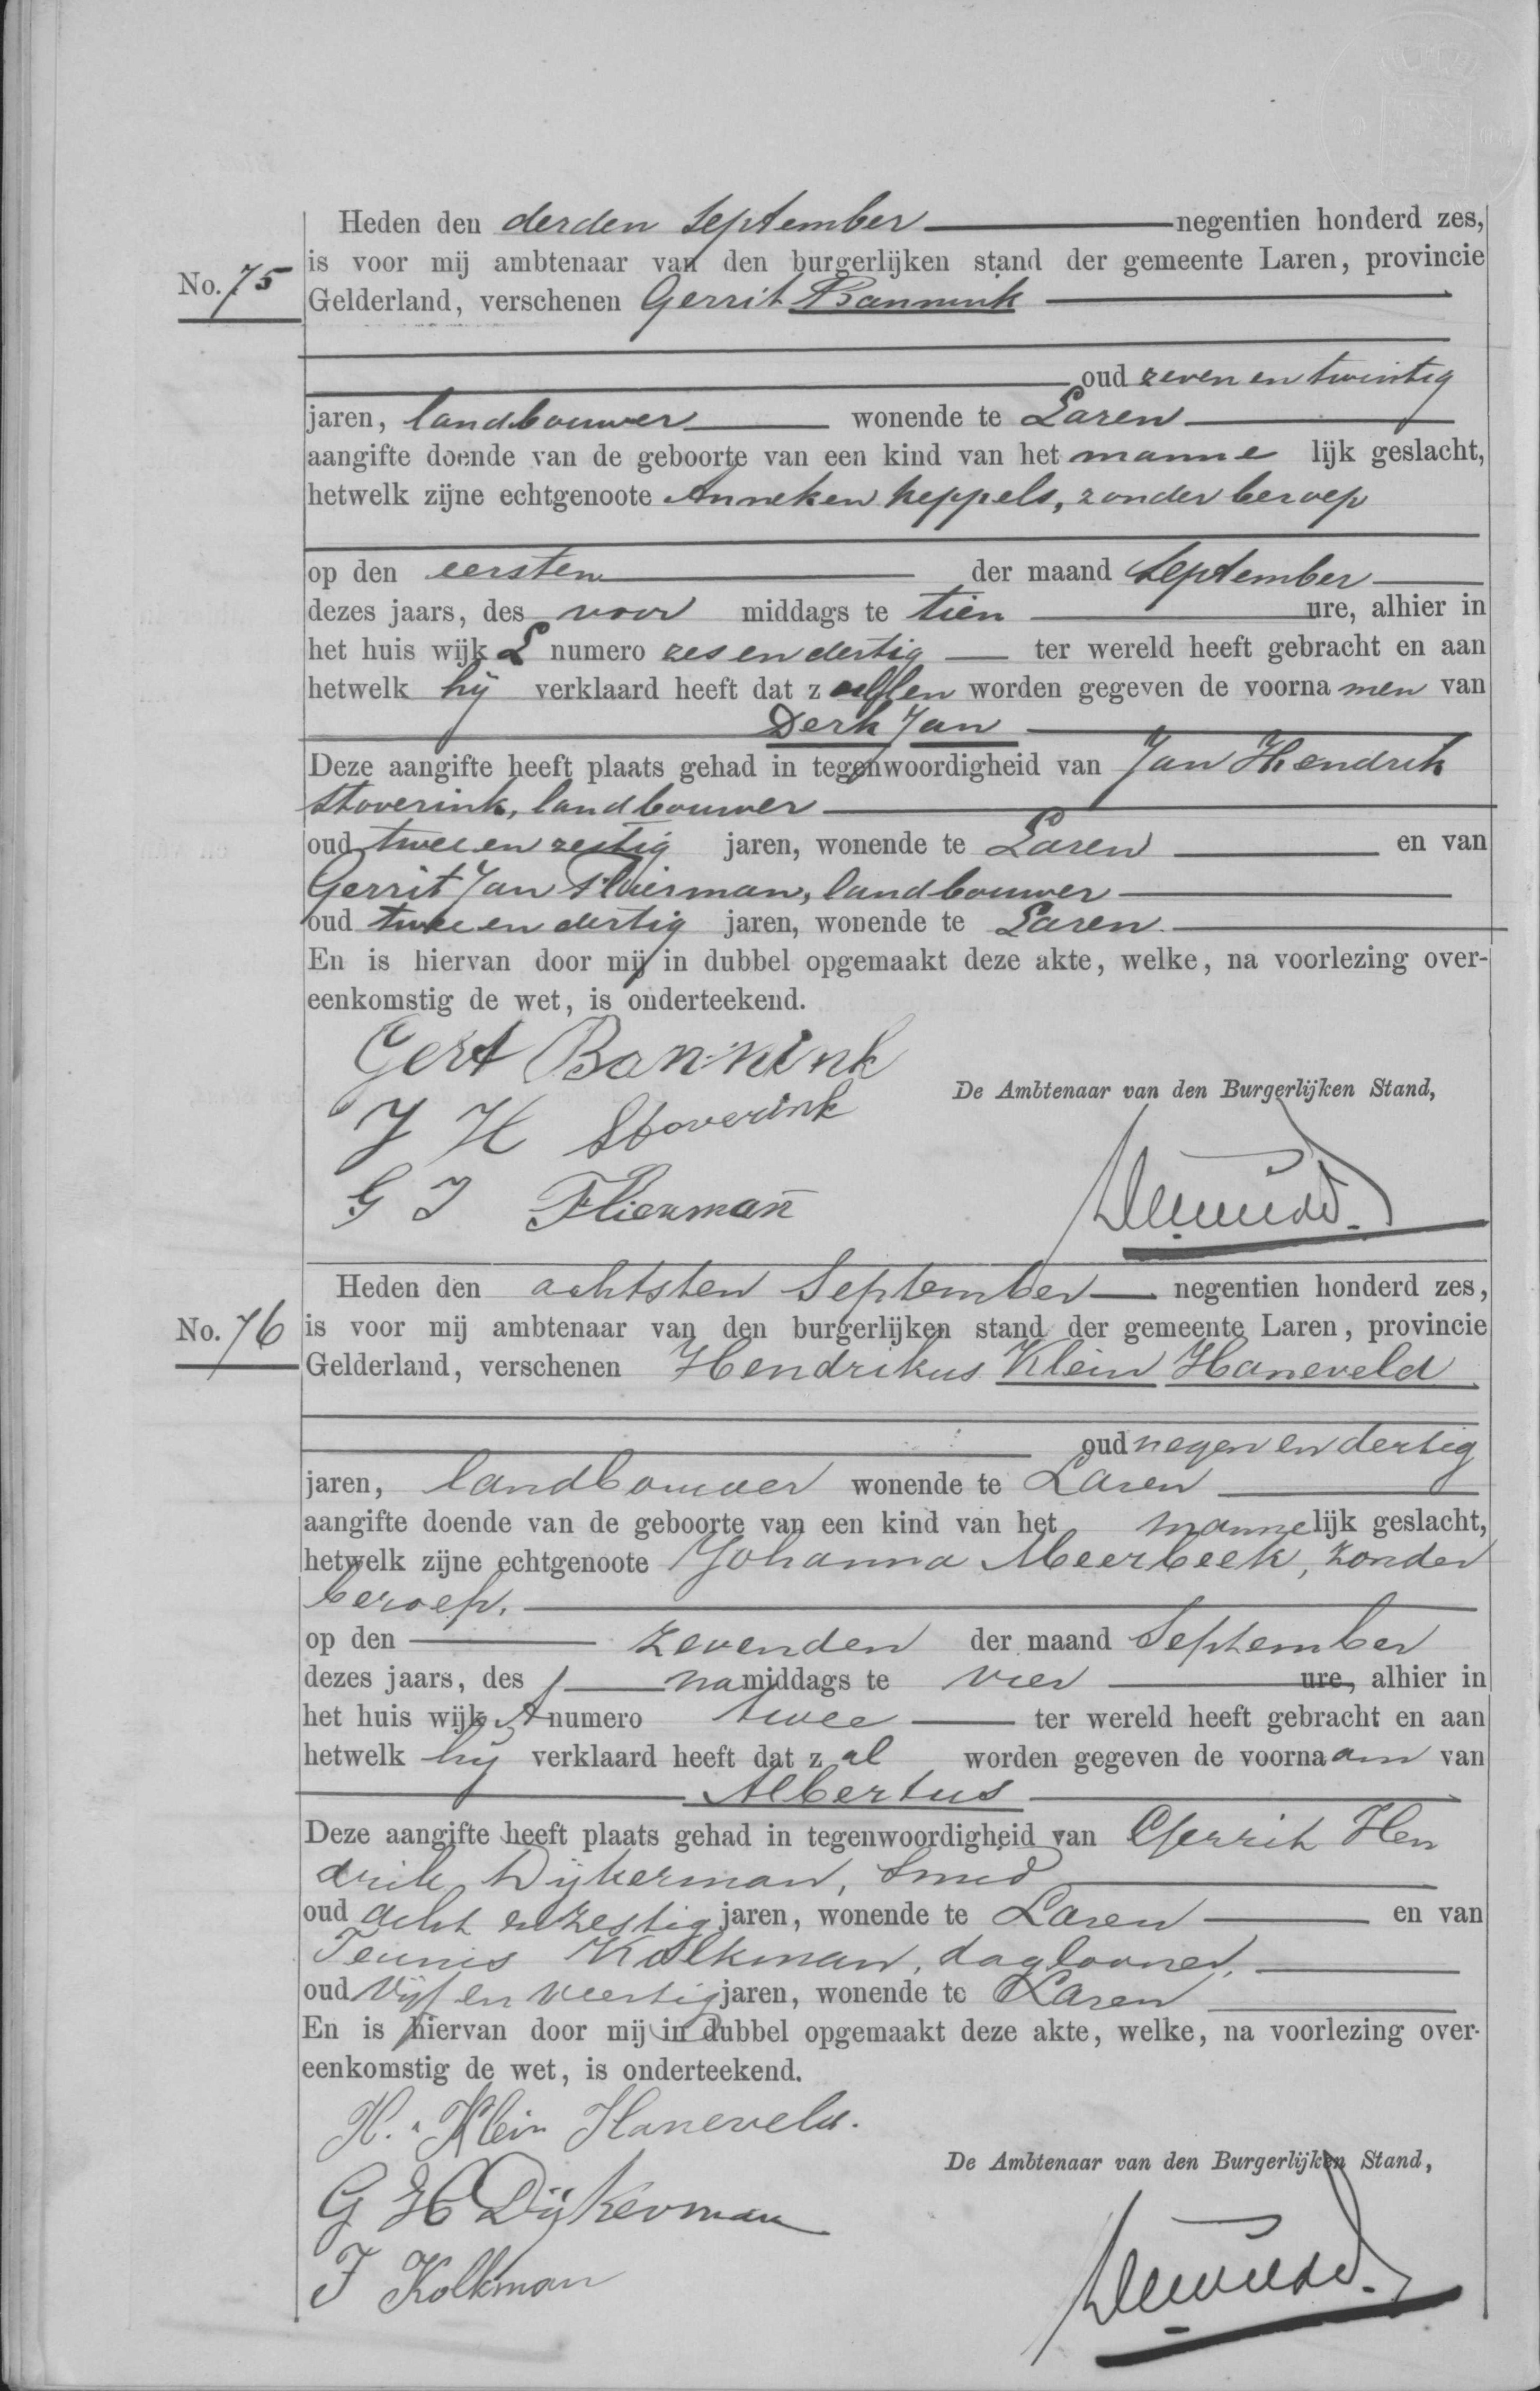 Heden den derden September negentien honderd zes,
No. 75
is voor mij ambtenaar van den burgerlijken stand der gemeente Laren, provincie
Gelderland, verschenen Gerrit Bannink
oud zeven en twintig
jaren, landbouwer wonende te Laren
aangifte doende van de geboorte van een kind van het manne lijk geslacht,
hetwelk zijne echtgenoote Anneken Keppels, zonder beroep
op den eersten der maand September
dezes jaars, des voor middags te tien ure, alhier in
het huis wijk L numero zes en dertig ter wereld heeft gebracht en aan
hetwelk hij verklaard heeft dat z ullen worden gegeven de voorna men van
Derk Jan
Deze aangifte heeft plaats gehad in tegenwoordigheid van Jan Hendrik
Stoverink, landbouwer
oud twee en zestig jaren, wonende te Laren en van
Gerrit Jan Flierman, landbouwer
oud twee en dertig jaren, wonende te Laren
En is hiervan door mij in dubbel opgemaakt deze akte, welke, na voorlezing over-
eenkomstig de wet, is onderteekend.
Gert Bannink
De Ambtenaar van den Burgerlijken Stand,
J H Stoverink
G J Flierman
Heden den achtsten September negentien honderd zes,
No. 76
is voor mij ambtenaar van den burgerlijken stand der gemeente Laren, provincie
Gelderland, verschenen Hendrikus Klein Haneveld
oud negen en dertig
jaren, landbouwer wonende te Laren
aangifte doende van de geboorte van een kind van het mannelijk geslacht,
hetwelk zijne echtgenoote Johanna Meerbeek, zonder
beroep.
op den zevenden der maand September
dezes jaars, des namiddags te vier ure, alhier in
het huis wijk A numero twee ter wereld heeft gebracht en aan
hetwelk hij verklaard heeft dat z al worden gegeven de voornaam van
Albertus
Deze aangifte heeft plaats gehad in tegenwoordigheid van Gerrit Hen
drik Dijkerman, smid
oud acht en zestig jaren, wonende te Laren en van
Teunis Kolkman, daglooner,
oud Vijf en veertig jaren, wonende te Laren
En is hiervan door mij in dubbel opgemaakt deze akte, welke, na voorlezing over-
eenkomstig de wet, is onderteekend.
H. Klein Haneveld.
De Ambtenaar van den Burgerlijken Stand,
G H Dijkerman
T Kolkman